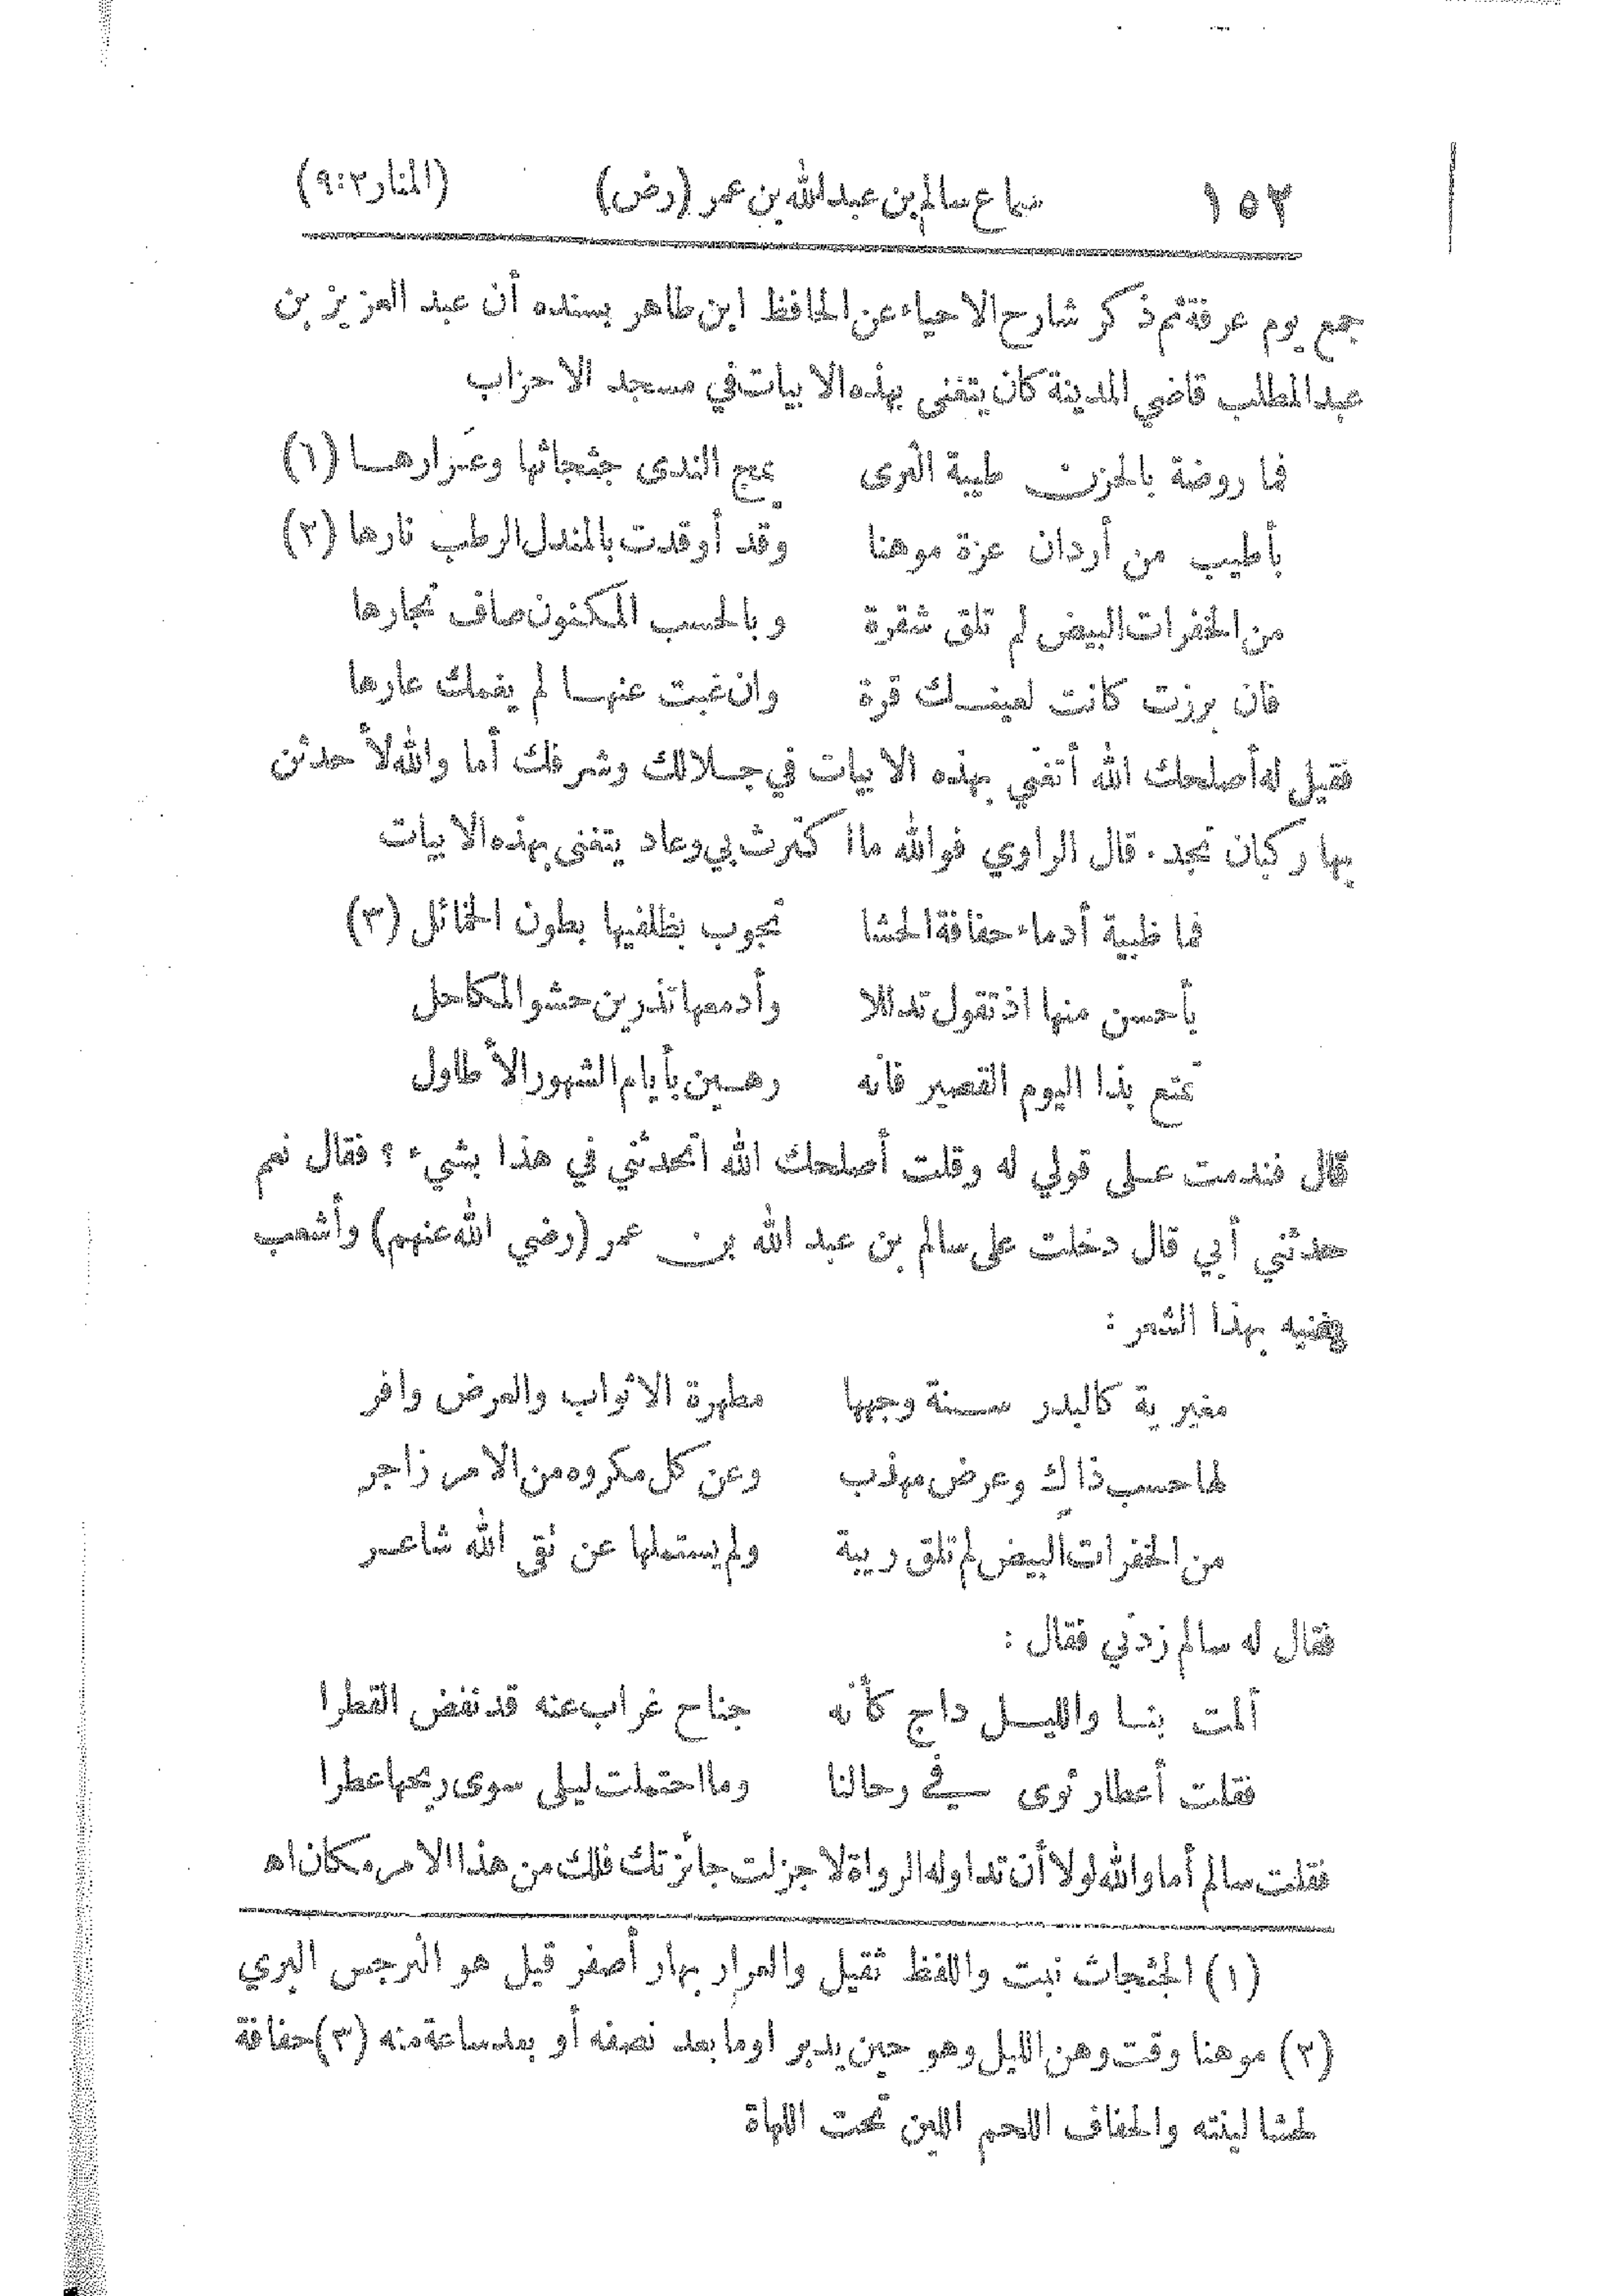 ١٥٢ سماع سالم بن عبد الله بن عمر (رض) (المنار ٩:٢)
جمع يوم عرفة ثم ذكر شارح الاحياء عن الحافظ ابن طاهر بسنده أن عبد العزيز بن
عبد المطلب قاضي المدينة كان يتغنى بهذه الابيات في مسجد الاحزاب
فما روضة بالحزن طيبة الثرى يمج الندى جثجاثها وعرارها (١)
بأطيب من أردان عزة موهنا وقد أوقدت بالمندل الرطب نارها (٢)
من الخفرات البيض لم تلق شقرة وبالحسب المكنون صاف نجارها
فان برزت كانت لعينك قرة وان غبت عنها لم يغمك عارها
فقيل له أصلحك الله أتغني بهذه الابيات في جلالك وشرفك أما والله لأحدثن
بها ركبان نجد . قال الراوي فوالله ما اكترث بي وعاد يتغنى بهذه الابيات
فما ظبية أدماء حفافة الحشا تجوب بظلفيها بطون الخمائل (٣)
بأحسن منها اذ تقول تدللا وأدمعها تذرين حشو المكاحل
تمتع بذا اليوم القصير فانه رهين بأيام الشهور الأطاول
قال فندمت على قولي له وقلت أصلحك الله اتحدثني في هذا بشيء ؟ فقال نعم
حدثني أبي قال دخلت على سالم بن عبد الله بن عمر (رضي الله عنهم) وأشعب
يغنيه بهذا الشعر :
مغيرية كالبدر سنة وجهها مطهرة الاثواب والعرض وافر
لها حسب ذاك وعرض مهذب وعن كل مكروه من الامر زاجر
من الخفرات البيض لم تلق ريبة ولم يستملها عن تقى الله شاعر
فقال له سالم زدني فقال :
ألمت بنا والليل داج كأنه جناح غراب عنه قد نفض القطرا
فقلت أعطار ثوى في رحالنا وما احتملت ليلى سوى ريحها عطرا
فقلت سالم أما والله لولا أن تداوله الرواة لاجزلت جائزتك فلك من هذا الامر مكان اه
(١) الجثجاث نبت واللفظ ثقيل والعرار بهار أصفر قيل هو النرجس البري
(٢) موهنا وقت وهن الليل وهو حين يدبر او ما بعد نصفه أو بعد ساعة منه (٣) حفافة
لحشا لينته والحفاف اللحم اللين تحت اللهاة